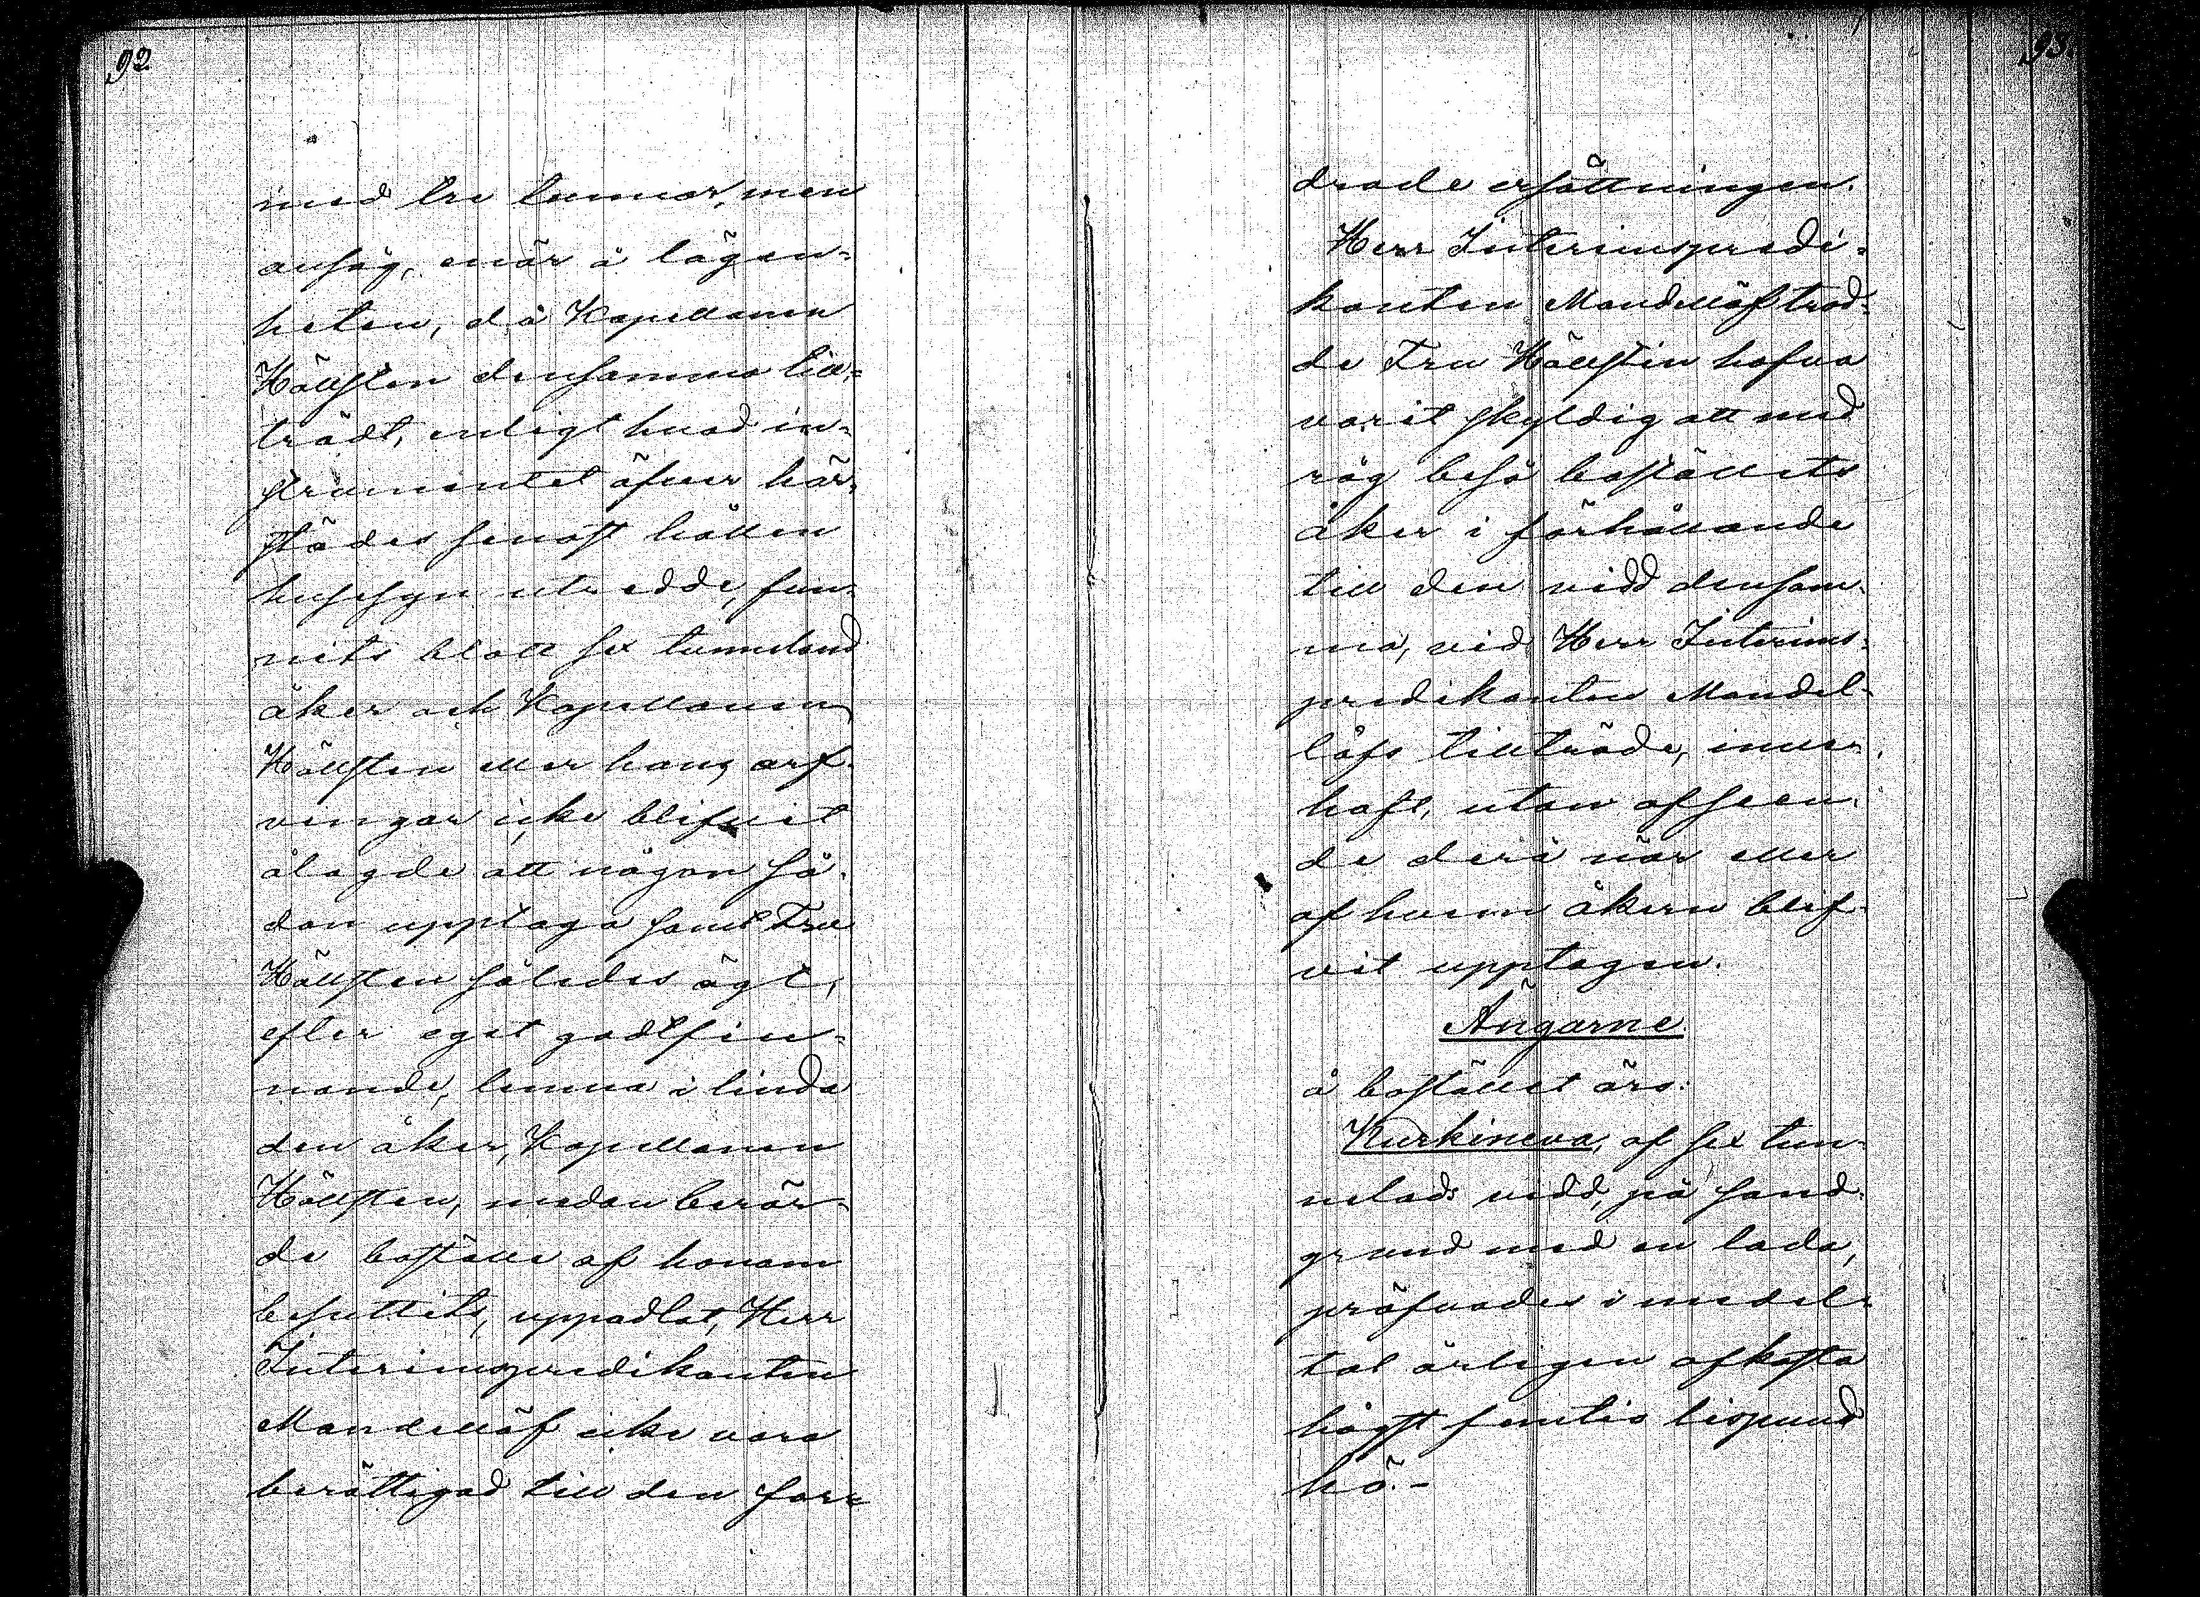 92.
med tre tunnor, men
ansåg, enär å lägen-
heten, då Kapellanen
Hällsten densamma till-
trädt, enligt hvad in-
strumentet öfver här-
städes senast hållen
husesyn utredde, fun-
nits blott sex tunneland
åker och Kapellanen
Hällsten eller hans arf-
vingar icke blifvit
ålagde att någon så-
dan upptaga samt Fru
Hällsten således ägt,
efter eget godtfin-
nande, lemna i linda
den åker, Kapellanen
Hällsten, medan berör-
de boställe af honom
besuttits, uppodlat, Herr
Interimspredikanten
Mandellöf icke vara
berättigad till den for-
93.
drade ersättningen.
Herr Interimspredi-
kanten Mandellöf trod-
de Fru Hällsten hafva
varit skyldig att med
råg beså boställets
åker i förhållande
till den vidd densam-
ma, vid Herr Interims-
predikanten Mandel-
löfs tillträde, inne-
haft, utan afseen-
de derå när eller
af hvem åkern blif-
vit upptagen.
Ängarne
å bostället äro:
Kurkineva, af sex tun-
nelads vidd, på sand-
grund med en lada,
pröfvades i medel-
tal årligen afkasta
högst femtio lispund
hö.-